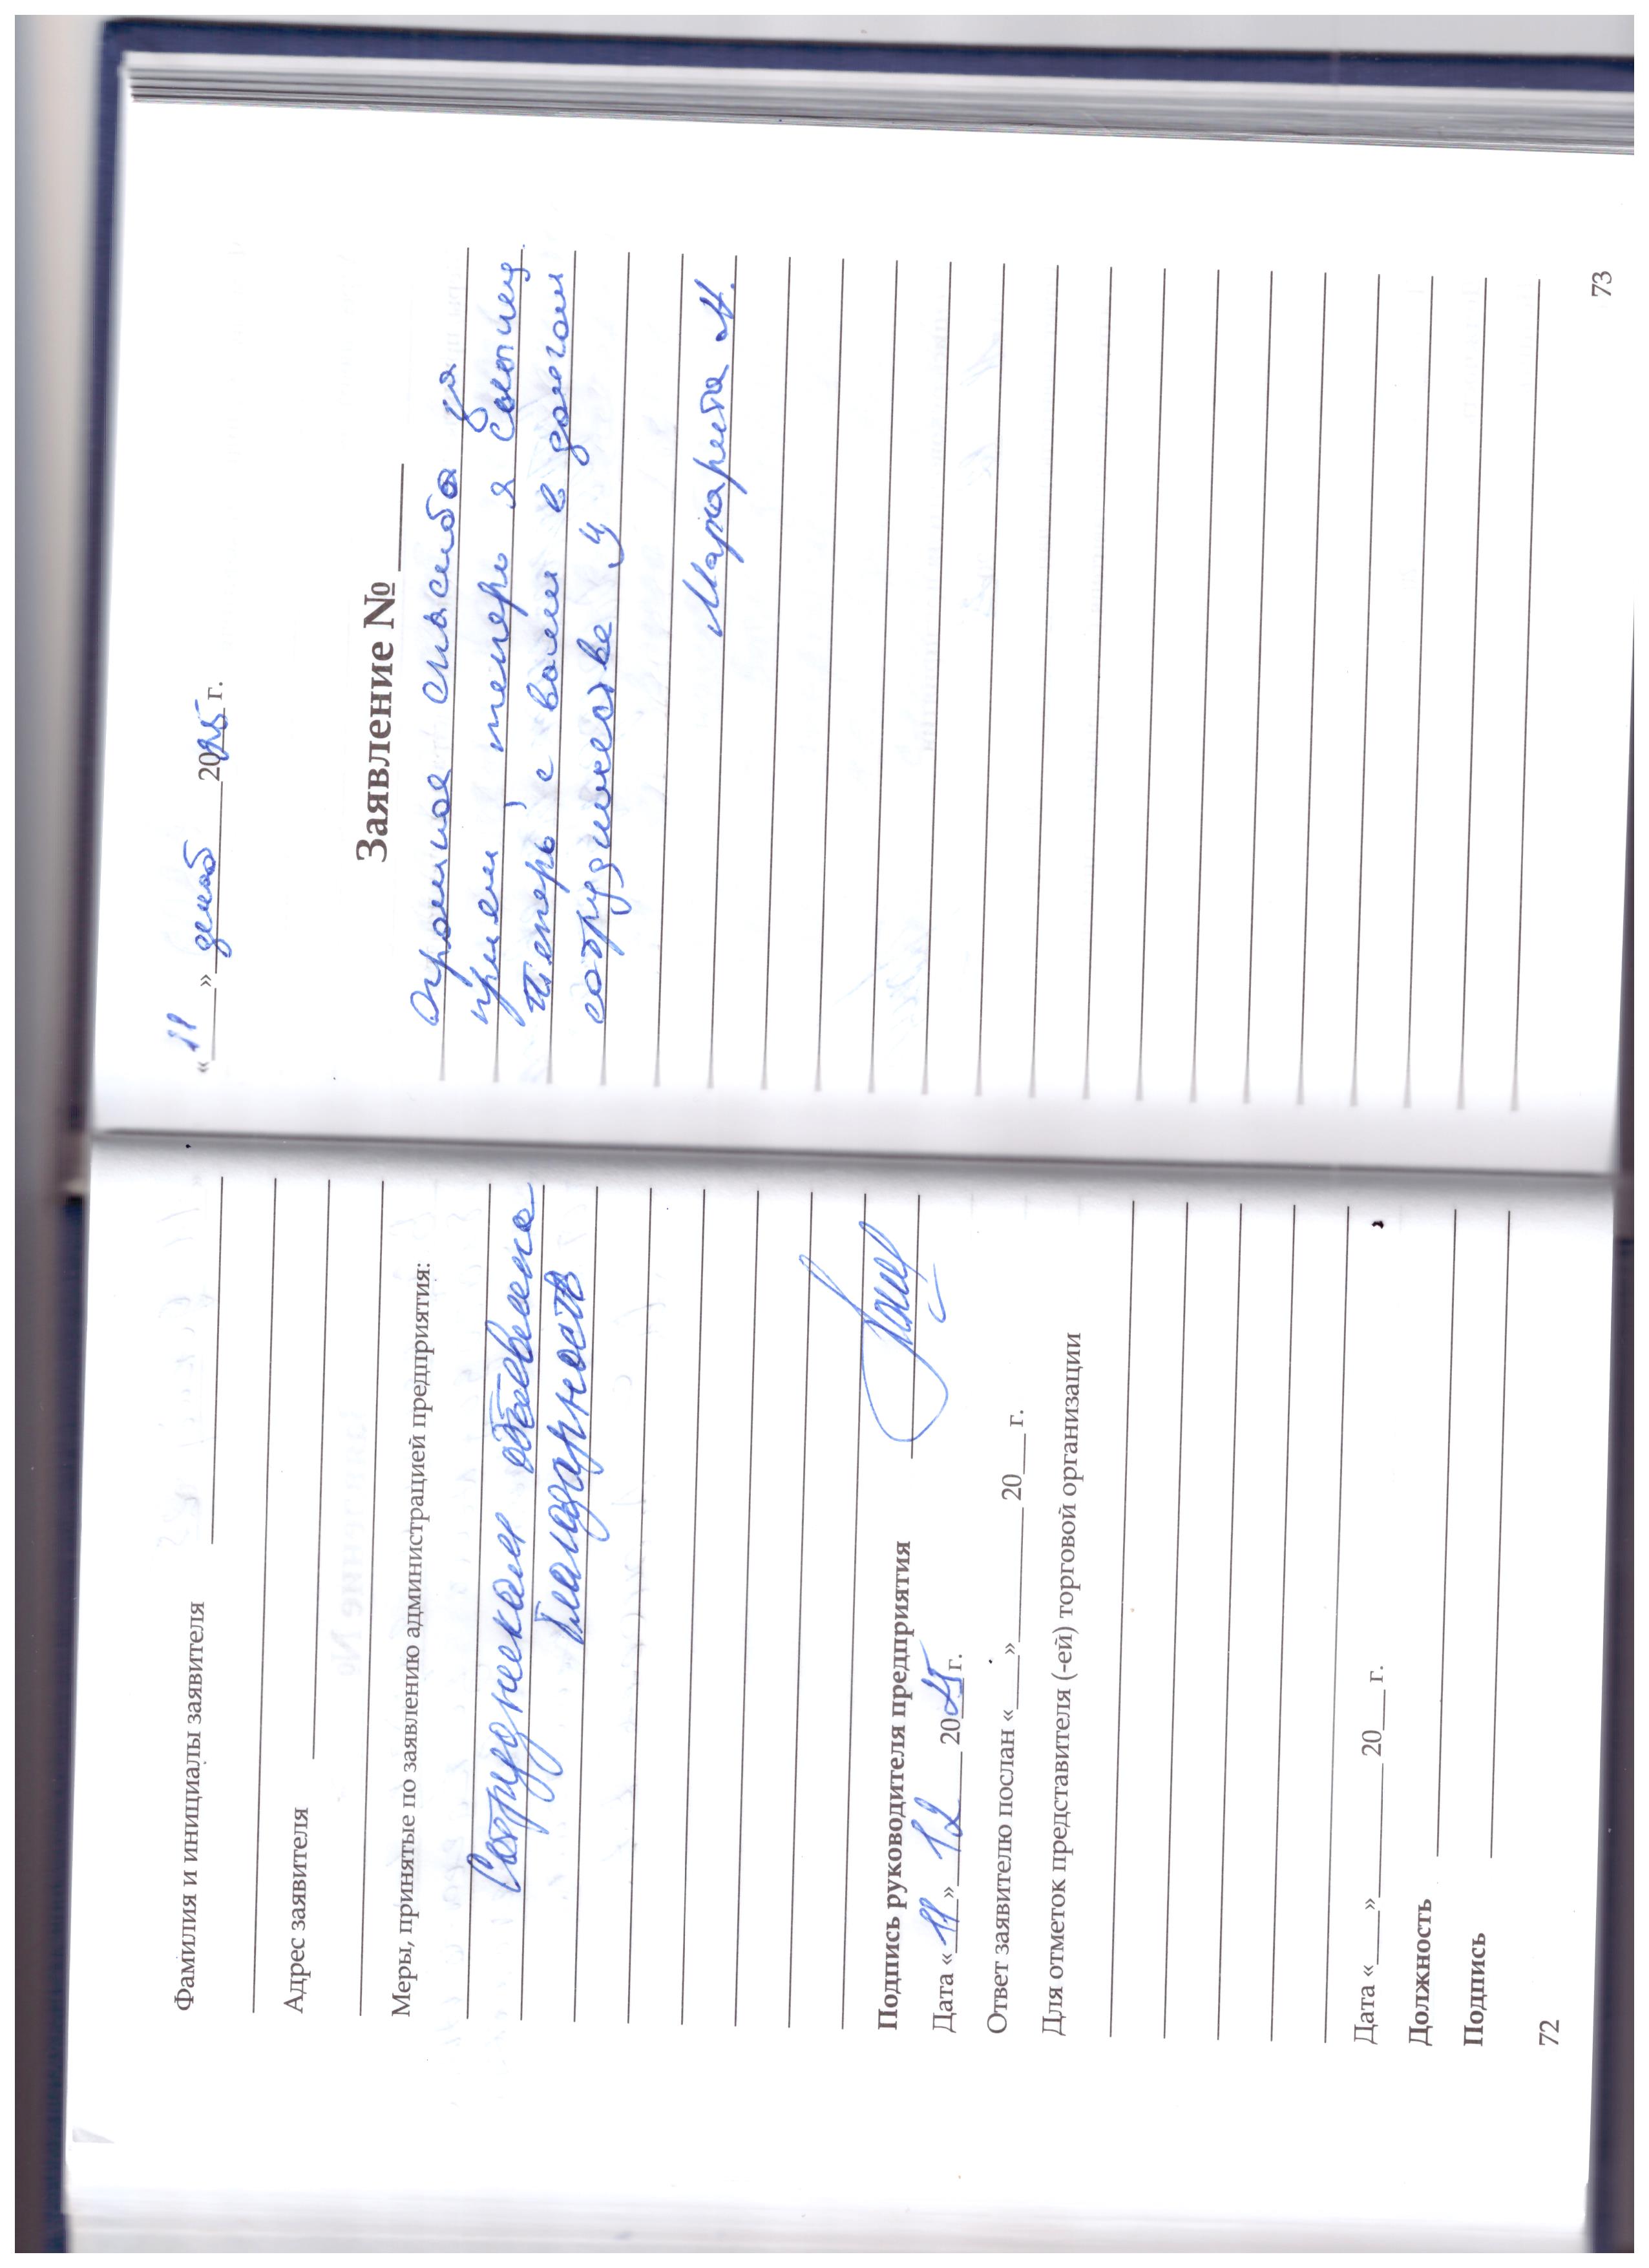 Фамилия и инициалы заявителя
Адрес заявителя
Меры, принятые по заявлению администрацией предприятия:
Сотрудникам объявлена
благодарность
Подпись руководителя предприятия
Дата «11» 12 2025г.
Ответ заявителю послан «___» ________ 20__ г.
Для отметок представителя (-ей) торговой организации
Дата «___» ________ 20__ г.
Должность
Подпись
72
«11» декаб 2025 г.
Заявление № ____
Огромное спасибо за
прием, теперь я
теперь с вами в долгом
сотрудничестве
Маргарита Н.
73